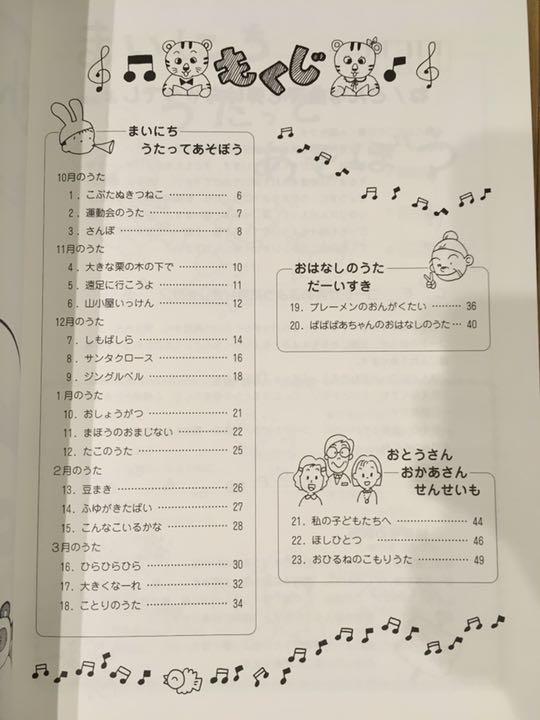 もくじ
まいにち
うたってあそぼう
10月のうた
1．こぶたぬきつねこ ……………… 6
2．運動会のうた ……………… 7
3．さんぽ ……………… 8
11月のうた
4．大きな栗の木の下で ……………… 10
5．遠足に行こうよ ……………… 11
6．山小屋いっけん ……………… 12
12月のうた
7．しもばしら ……………… 14
8．サンタクロース ……………… 16
9．ジングルベル ……………… 18
1月のうた
10．おしょうがつ ……………… 21
11．まほうのおまじない ……………… 22
12．たこのうた ……………… 25
2月のうた
13．豆まき ……………… 26
14．ふゆがきたばい ……………… 27
15．こんなこいるかな ……………… 28
3月のうた
16．ひらひらひら ……………… 30
17．大きくなーれ ……………… 32
18．ことりのうた ……………… 34
おはなしのうた
だーいすき
19．ブレーメンのおんがくたい ……… 36
20．ばばばあちゃんのおはなしのうた … 40
おとうさん
おかあさん
せんせいも
21．私の子どもたちへ ……………… 44
22．ほしひとつ ……………… 46
23．おひるねのこもりうた ……………… 49